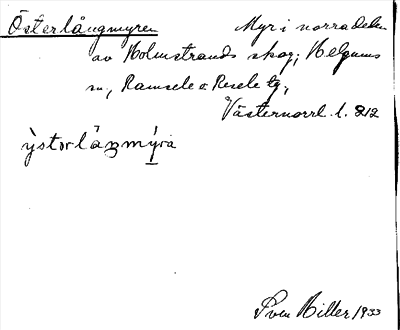 Österlångmyren Myr i norra delen
av Holmstrands skog; Helgums
sn, Ramsele o Resele tg,
Västernorrl. l. 212
ỳstorlåŋmýra
Sven Hiller 1933